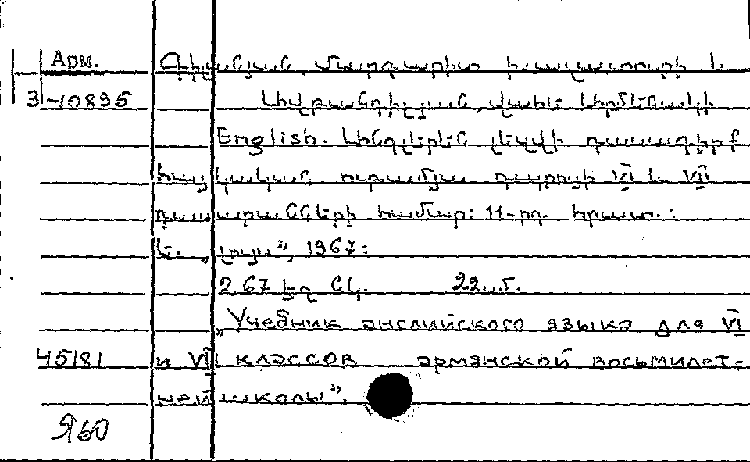 Арм. Գիլանյան Մարգարիտ Խաչատուրի և
3-10895
English. Անգլերեն լեզվի դասագիրք
հայկական ութամյա դպրոցի VI և VII
դասարանների համար: 11-րդ հրատ.:
Ե. „Լույս”, 1967:
267 էջ նկ. 22 г.
„Учебник английского языка для VI
45181 и VII классов армянской восьмилет-
ней школы”.
Я60